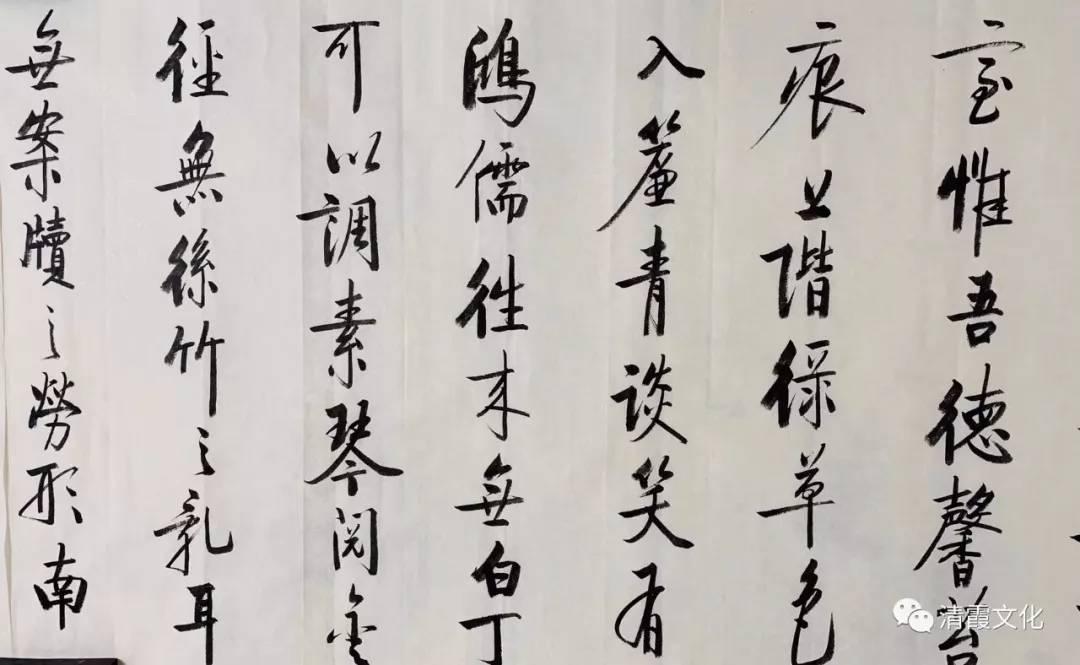 室惟吾德馨苔
痕上階緑草色
入簾青談笑有
鴻儒往来無白丁
可以調素琴閲金
經無絲竹之亂耳
無案牘之勞形南
清霞文化